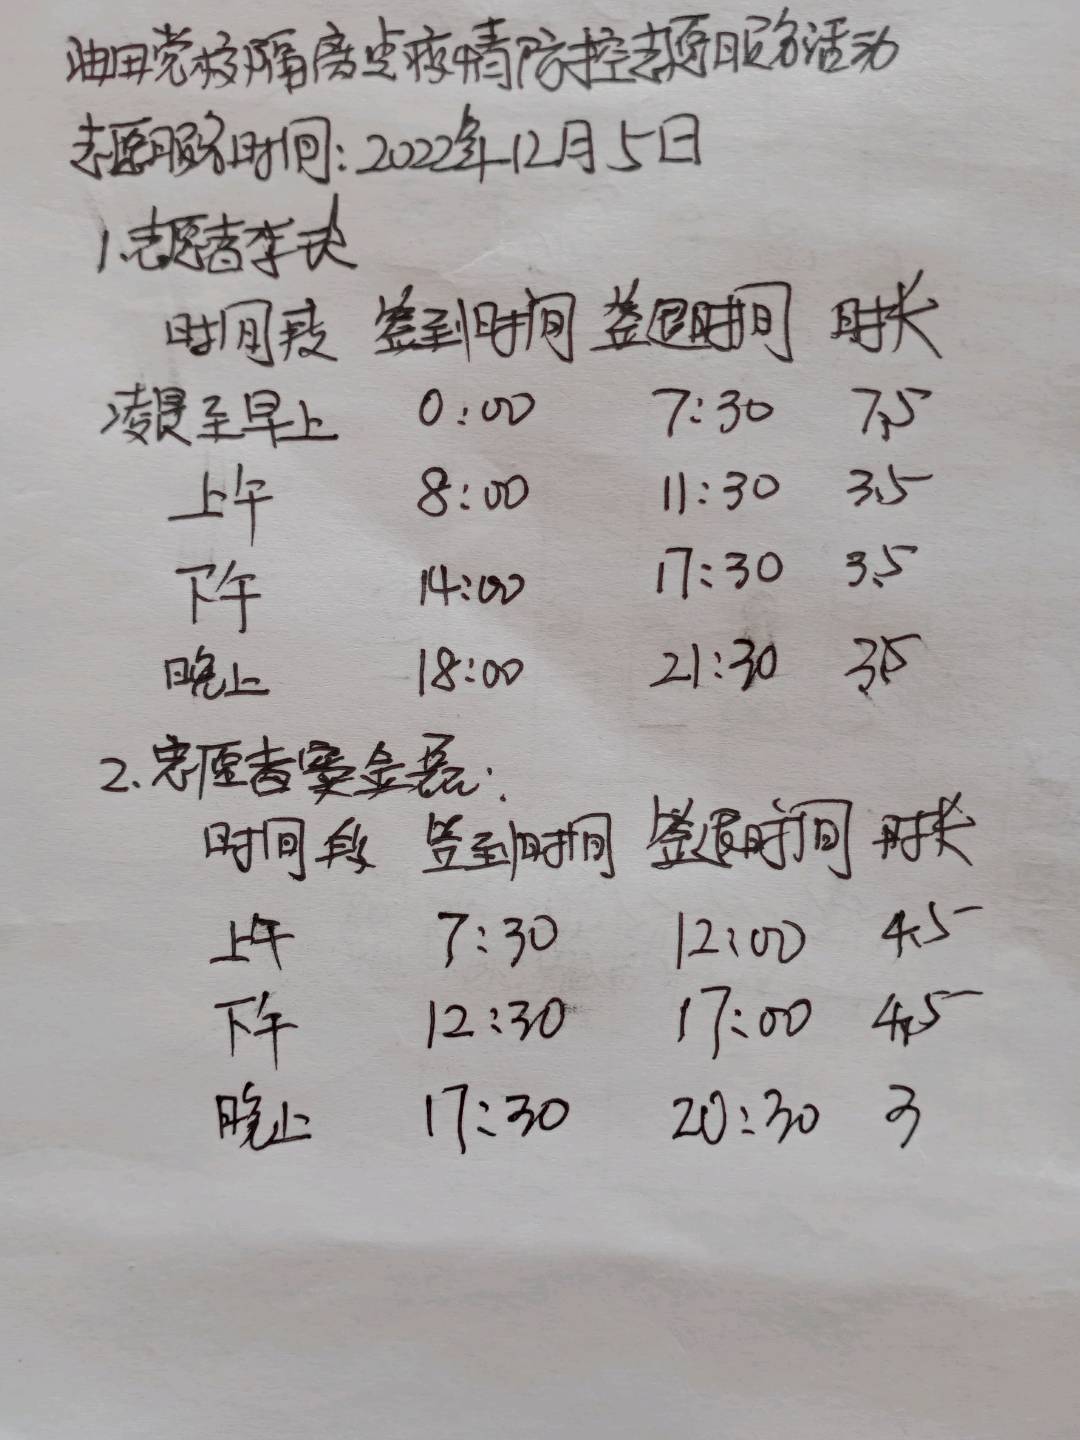 曲田党校隔离点疫情防控志愿服务活动
志愿服务时间：2022年12月5日
1.志愿者李
时间段 签到时间 签退时间 时长
凌晨至早上 0:00 7:30 7.5
上午 8:00 11:30 3.5
下午 14:00 17:30 3.5
晚上 18:00 21:30 3.5
2.志愿者 金磊：
时间段 签到时间 签退时间 时长
上午 7:30 12:00 4.5
下午 12:30 17:00 4.5
晚上 17:30 20:30 3